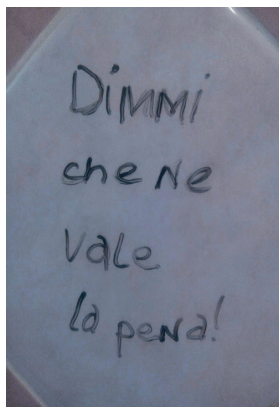 Dimmi
che ne
vale
la pena!